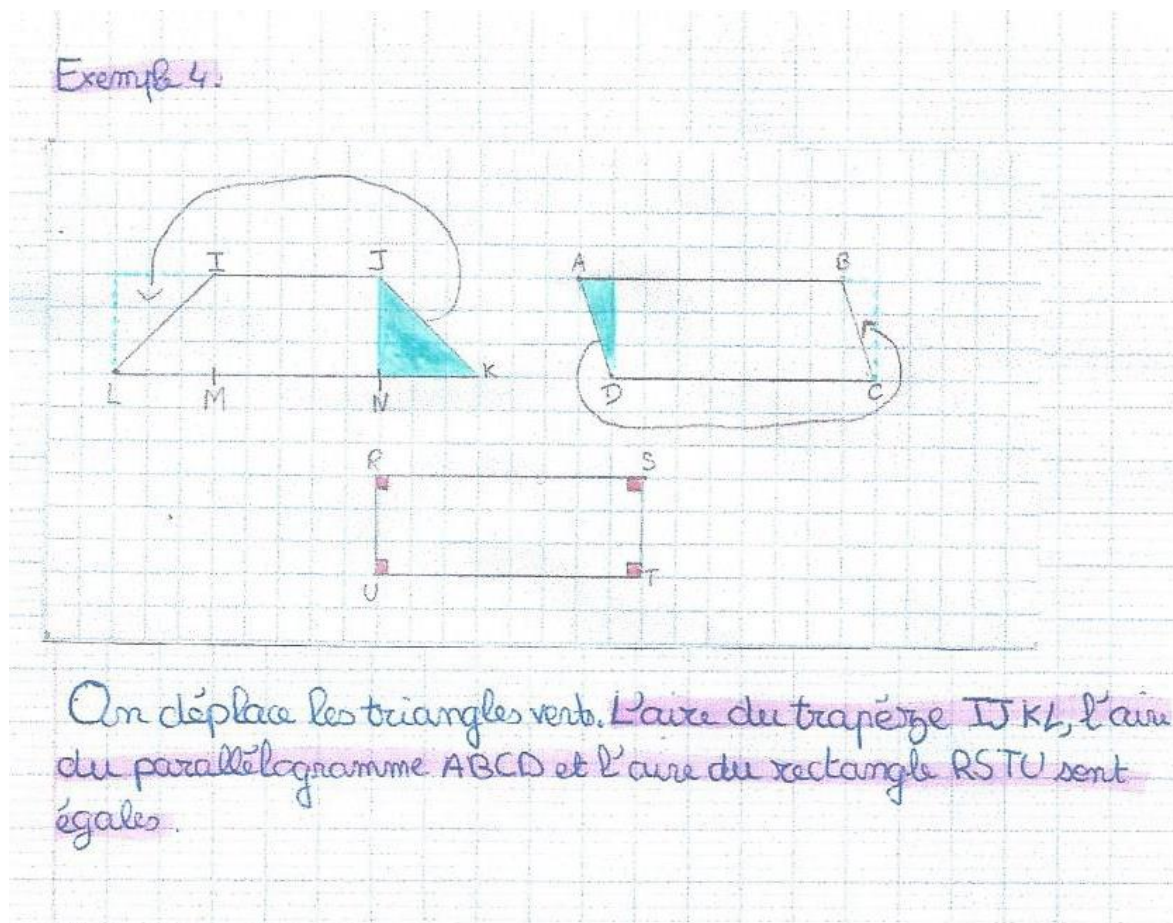 Exemple 4.
I J A B
L M N K D C
R S
U T
On déplace les triangles verts. L'aire du trapèze IJKL, l'aire
du parallélogramme ABCD et l'aire du rectangle RSTU sont
égales.